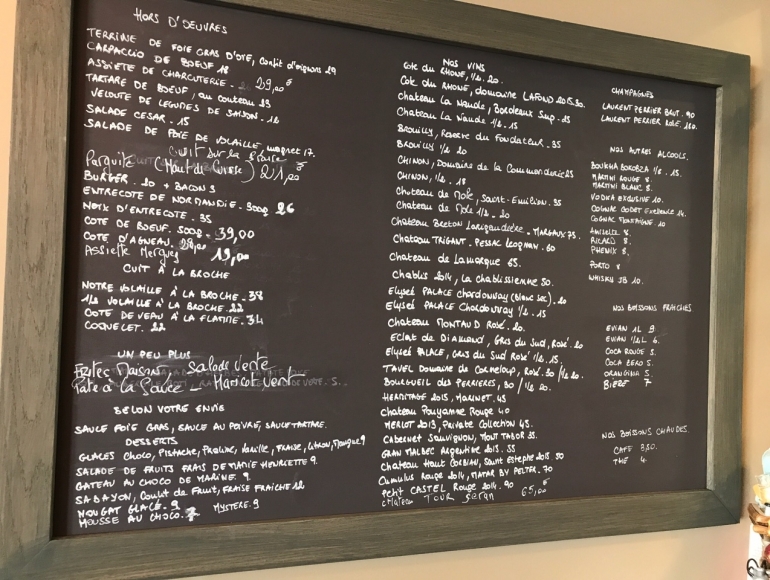 HORS D'OEUVRES
TERRINE DE FOIE GRAS D'OIE, Confit d'oignons 29
CARPACCIO DE BOEUF 18
ASSIETE DE CHARCUTERIE 29,00€
TARTARE DE BOEUF, au couteau 23
VELOUTE DE LEGUMES DE SAISON. 12
SALADE CESAR. 15
SALADE DE FOIE DE VOLAILLE, magret 17.
CUIT SUR LA BRAISE
(Haut de Cuisse) 21,00
BURGER. 20 + BACON 3
ENTRECOTE DE NORMANDIE. 300g 26
NOIX D'ENTRECOTE. 35
COTE DE BOEUF. 500g. 39,00
COTE D'AGNEAU. 28,00
ASSIETTE Merguez 19,00
CUIT À LA BROCHE
NOTRE VOLAILLE À LA BROCHE. 38
1/2 VOLAILLE À LA BROCHE. 22
COTE DE VEAU À LA FLAMME. 34
COQUELET. 22
UN PEU PLUS
Frites Maisons Salade Verte
Pate à la Sauce - Haricot Vert
SELON VOTRE ENVIE
SAUCE FOIE GRAS, SAUCE AU POIVRE, SAUCE TARTARE.
DESSERTS
GLACES CHOCO, Pistache, Praline, Vanille, FRAISE, Citron, Mangue 9
SALADE DE FRUITS FRAIS DE MARIE HENRIETTE 9.
GATEAU AU CHOCO DE MARINE. 9
SABAYON, Coulit de Fruit, FRAISE FRAICHE 12
NOUGAT GLACÉ. 9 MYSTERE. 9
MOUSSE AU CHOCO. 7
NOS VINS
Cote du RHONE, 1/2. 20.
Cote du RHONE, domaine LAFOND 2015. 30.
Chateau La Naude, Bordeaux Sup. 25
Chateau La Naude 1/2. 15
BROUILLY, Reserve du Fondateur. 35
BROUILLY 1/2 20
CHINON, Domaine de la Commanderie 25
CHINON, 1/2. 18
Chateau de Mole, Saint-Emilion. 35
Chateau de Mole 1/2. 20
Chateau Breton Larigaudière. MARGAUX 75.
Chateau TRIGANT. PESSAC Leognan. 60
Chateau de Lamarque 65.
Chablis 2014, La Chablisienne 50.
Elysée PALACE Chardonnay (blanc sec). 20
Elysée PALACE Chardonnay 1/2. 15
Chateau MONTAUD Rosé. 20.
Eclat de Diamant, Gris du Sud, Rosé. 20
Elysée PALACE, Gris du Sud Rosé 1/2. 15.
TAVEL Domaine de Corneloup, Rosé. 30 / 1/2 20.
BOURGUEIL des PERRIERES, 30 / 1/2. 20.
HERMITAGE 2015, MARINET. 45
Chateau Pouyanne Rouge 40
MERLOT 2013, Private Collection 45.
Cabernet Sauvignon, MONT TABOR 35.
GRAN MALBEC Argentine 2015. 55
Chateau Haut CORBIAN, Saint Estephe 2010 50
Cumulus Rouge 2014, MATAR BY PELTER. 70
Petit CASTEL Rouge 2014. 90
Chateau TOUR Seran 65,00€
CHAMPAGNES
LAURENT PERRIER BRUT. 90
LAURENT PERRIER ROSE. 120.
NOS AUTRES ALCOOLS.
BOUKHA BOKOBZA 1/2. 15.
MARTINI ROUGE 8
MARTINI BLANC 8.
VODKA EXCLUSIVE 10.
COGNAC GODET EXCELLENCE 14.
COGNAC MONTAIGNE 10
AMISETTE 8.
RICARD 8.
PHENIX 8.
PORTO 8
WHISKY JB 10.
NOS BOISSONS FRAICHES
EVIAN 1L 9.
EVIAN 1/2L 6.
COCA ROUGE 5.
COCA ZERO 5.
ORANGINA 5.
BIERE 7
NOS BOISSONS CHAUDES.
CAFE 3,50.
THE 4.